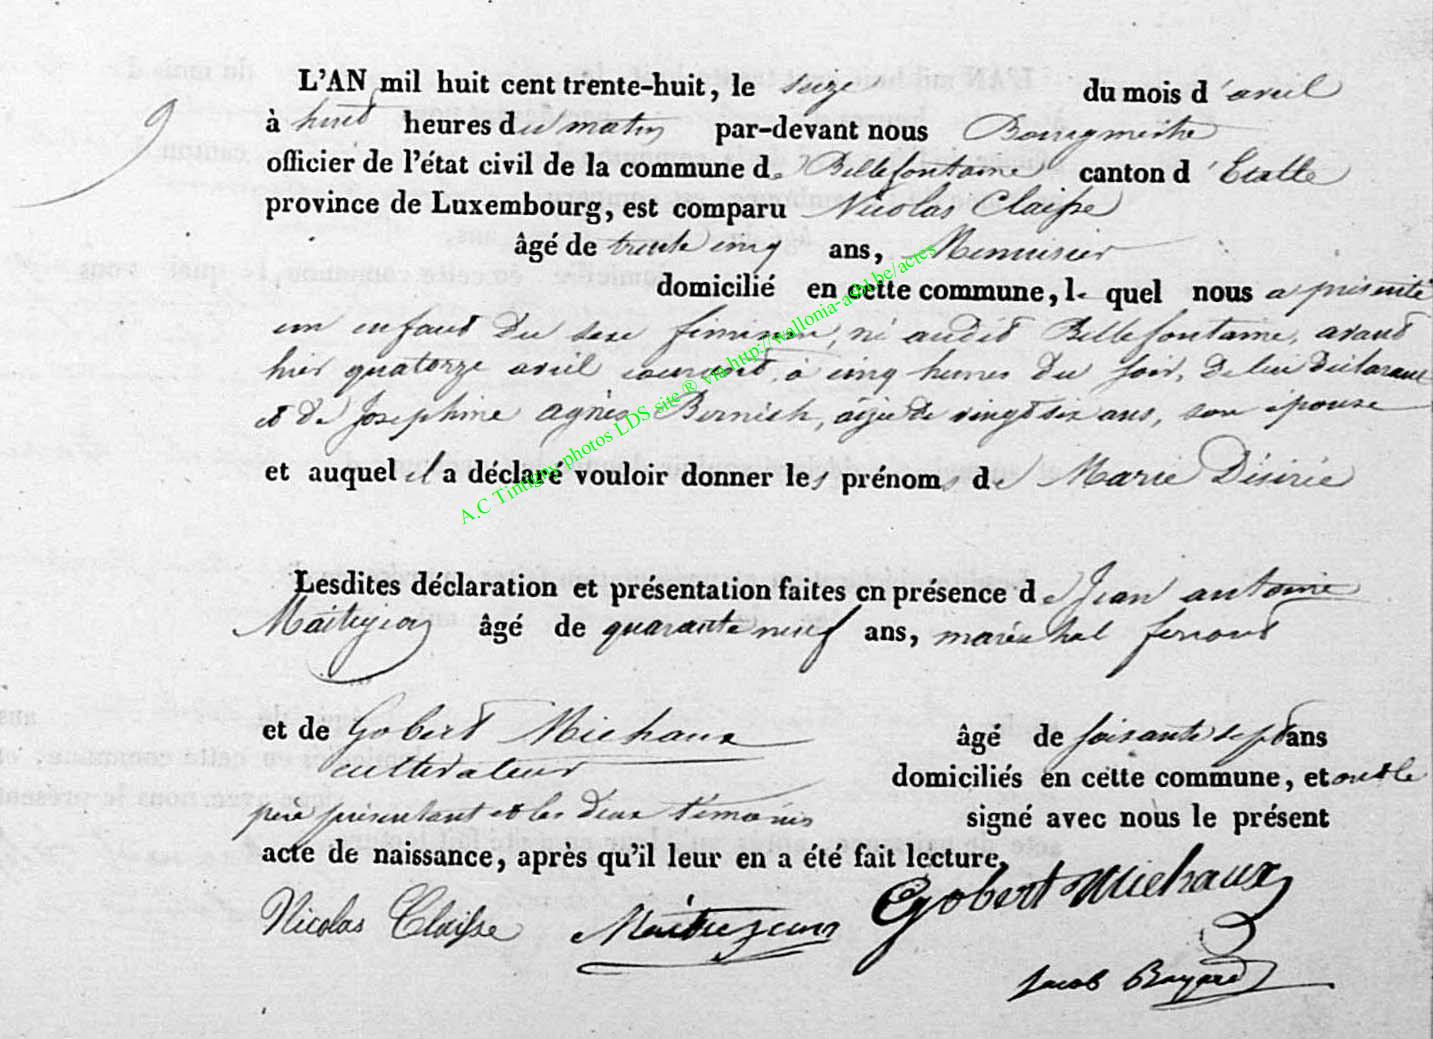 L'AN mil huit cent trente-huit, le seize du mois d'avril
9
à huit heures du matin par-devant nous Bourgmestre
officier de l'état civil de la commune de Bellefontaine canton d'Etalle
province de Luxembourg, est comparu Nicolas Claisse
âgé de trente cinq ans, Menuisier
domicilié en cette commune, le quel nous a présenté
un enfant du sexe féminin, né audit Bellefontaine, avant
hier quatorze avril courant, à cinq heures du soir, de lui déclarant
et de Josephine agnès, agée de vingt six ans, son épouse
et auquel il a déclaré vouloir donner les prénoms de Marie Désirée
Lesdites déclaration et présentation faites en présence de Jean antoine
Maitrejean âgé de quarante neuf ans, maréchal ferrant
et de Gobert Michaux âgé de soisante sept ans
cultivateur domiciliés en cette commune, et ont le
père présentant et les deux témoins signé avec nous le présent
acte de naissance, après qu'il leur en a été fait lecture.
Nicolas Claisse Maitrejean Gobert Michaux
Jacob Bayard
A.C Tintigny photos LDS site ® via http://wallonia-asbl.be/actes